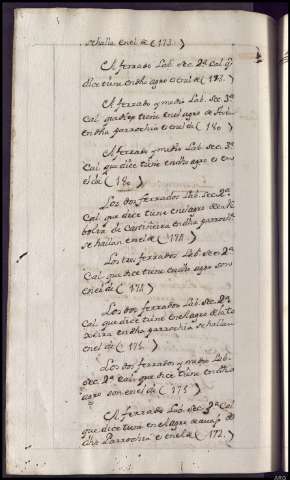 se halla en el de (173.)
El ferrado Lab. sec. 2ª Cal. q.
dice tiene en dho agro es el de (178.)
El ferrado y medio Lab. sec. 3ª
Cal. que dize tiene en el agro de
en dha parrochia es el de (180)
El ferrado y medio Lab. sec. 3ª
Cal. que dice tiene en dho agro es en
el de (180.)
Los dos ferrados Lab. sec. 2ª
Cal. que dice tiene en el agro de
de Castiñeira en dha parroch.
se hallan en el de (174.)
Los tres ferrados Lab. sec. 2ª
Cal. que dice tiene en dho agro son
en el de (174.)
Los dos ferrados Lab. sec. 2ª
Cal. que dice tiene en el agro de
en dha parrochia se hallan
en el de (175.)
Los dos ferrados y medio Lab.
sec. 2ª Cal. que dice tiene en dho
agro son en el de (175)
El ferrado Lab. sec. 3ª Cal.
que dice tiene en el agro de
dha Parrochia es en el de (172.)